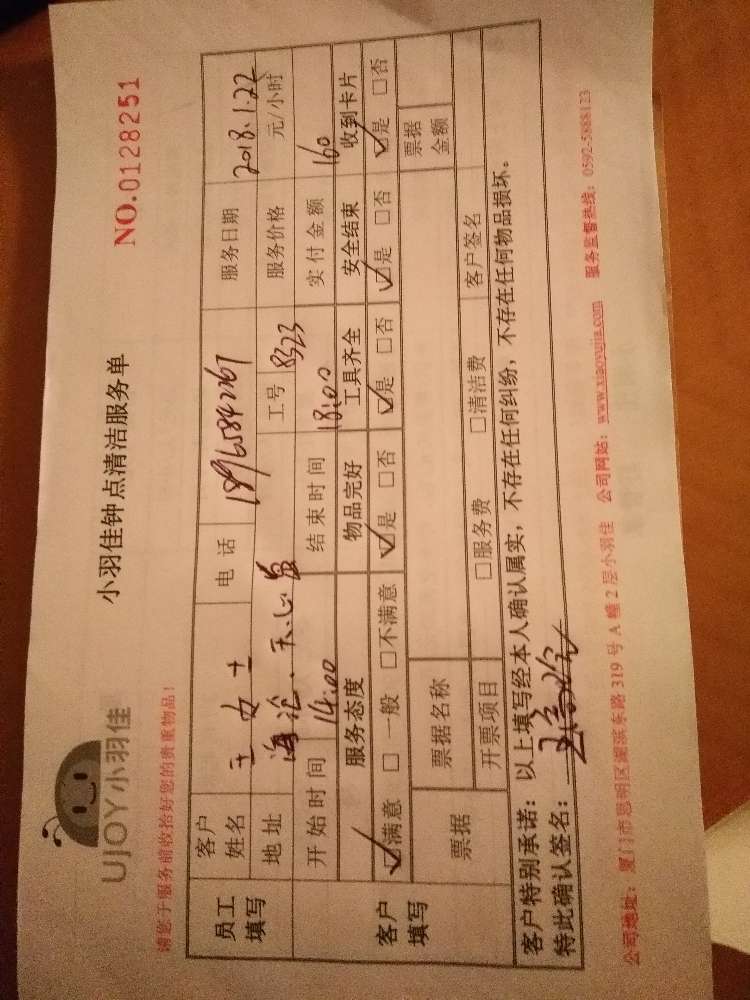 UJOY小羽佳
小羽佳钟点清洁服务单
NO.0128251
请您于服务前收拾好您的贵重物品！
员工填写
客户姓名 王女士 电话 服务日期 2018.1.22
地址 海沧、天心岛 工号 8323 服务价格 元/小时
开始时间 14:00 结束时间 18:00 实付金额 160
客户填写
服务态度 物品完好 工具齐全 安全结束 收到卡片
☑满意 □一般 □不满意 ☑是 □否 ☑是 □否 ☑是 □否 ☑是 □否
票据 票据名称 票据金额
开票项目 □服务费 □清洁费 客户签名
客户特别承诺：以上填写经本人确认属实，不存在任何纠纷，不存在任何物品损坏。
特此确认签名：
公司地址：厦门市思明区湖滨东路319号A幢2层小羽佳 公司网站：www.xiaoyujia.com 服务监督热线：0592-5888123